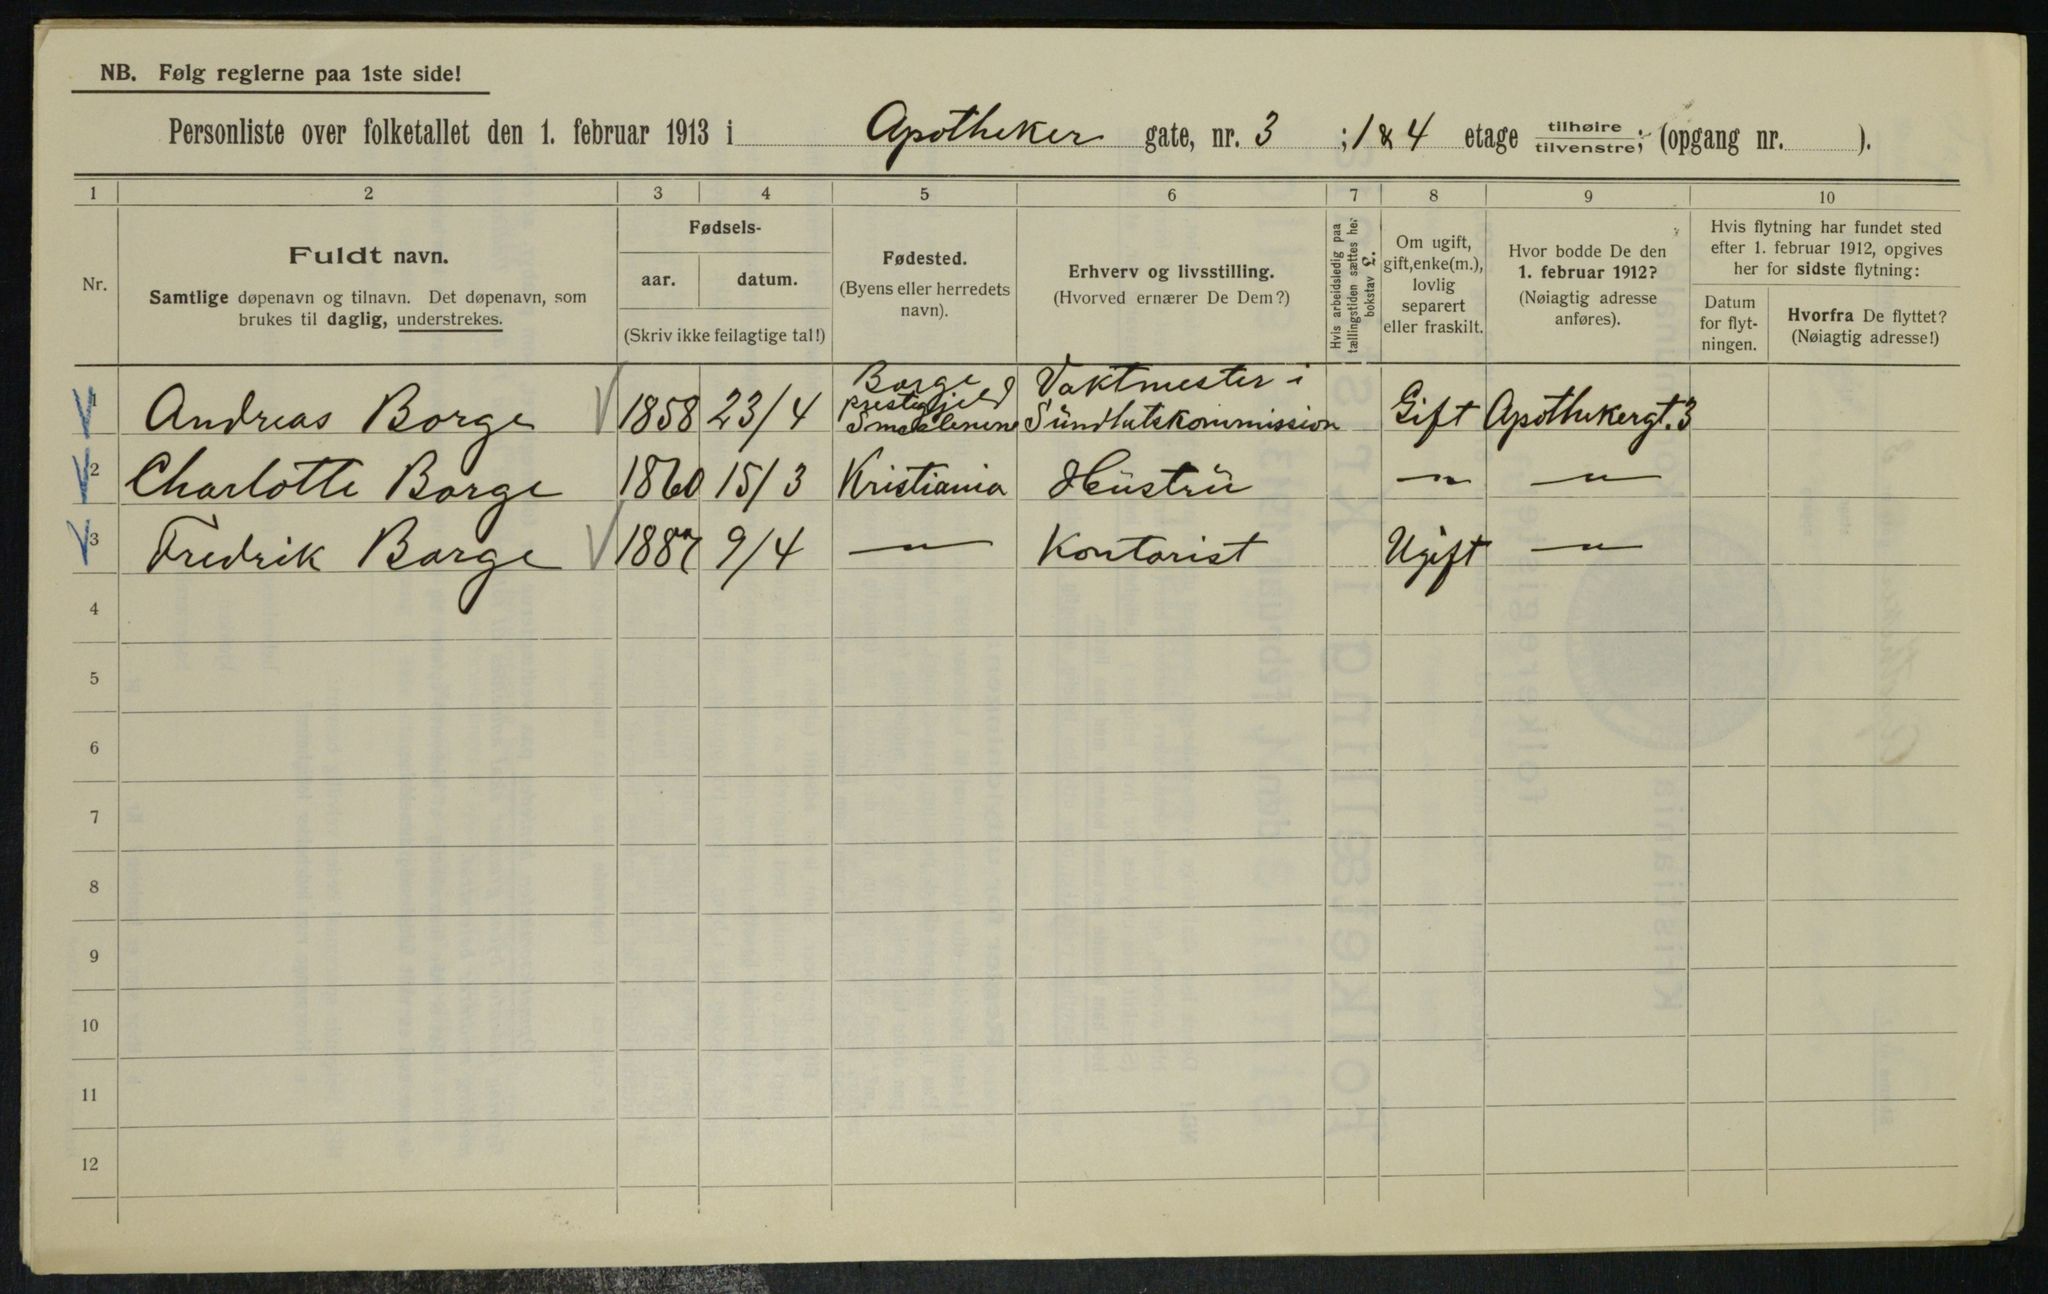 NB. Følg reglerne paa 1ste side!
Personliste over folketallet den 1. februar 1913 i Apotheker gate, nr. 3 ; 1 & 4 etage tilhøire tilvenstre; (opgang nr. ).
1 2 3 4 5 6 7 8 9 10
Nr.
Fuldt navn.
Samtlige døpenavn og tilnavn. Det døpenavn, som
brukes til daglig, understrekes.
Fødsels-
aar. datum.
(Skriv ikke feilagtige tal!)
Fødested.
(Byens eller herredets
navn).
Erhverv og livsstilling.
(Hvorved ernærer De Dem?)
Hvis arbeidsledig paa
tællingstiden sættes her
bokstav
Om ugift,
gift, enke(m.),
lovlig
separert
eller fraskilt.
Hvor bodde De den
1. februar 1912?
(Nøiagtig adresse
anføres).
Hvis flytning har fundet sted
efter 1. februar 1912, opgives
her for sidste flytning:
Datum
for flyt-
ningen.
Hvorfra De flyttet?
(Nøiagtig adresse!)
1 Andreas Borge 1858 23/4 Borge prestegjeld Smaalenene Vaktmester i Sündhetskommission Gift Apothekergt. 3
2 Charlotte Borge 1860 15/3 Kristiania Hüstrü — " — — " —
3 Fredrik Borge 1887 9/4 — " — Kontorist Ugift — " —
4
5
6
7
8
9
10
11
12